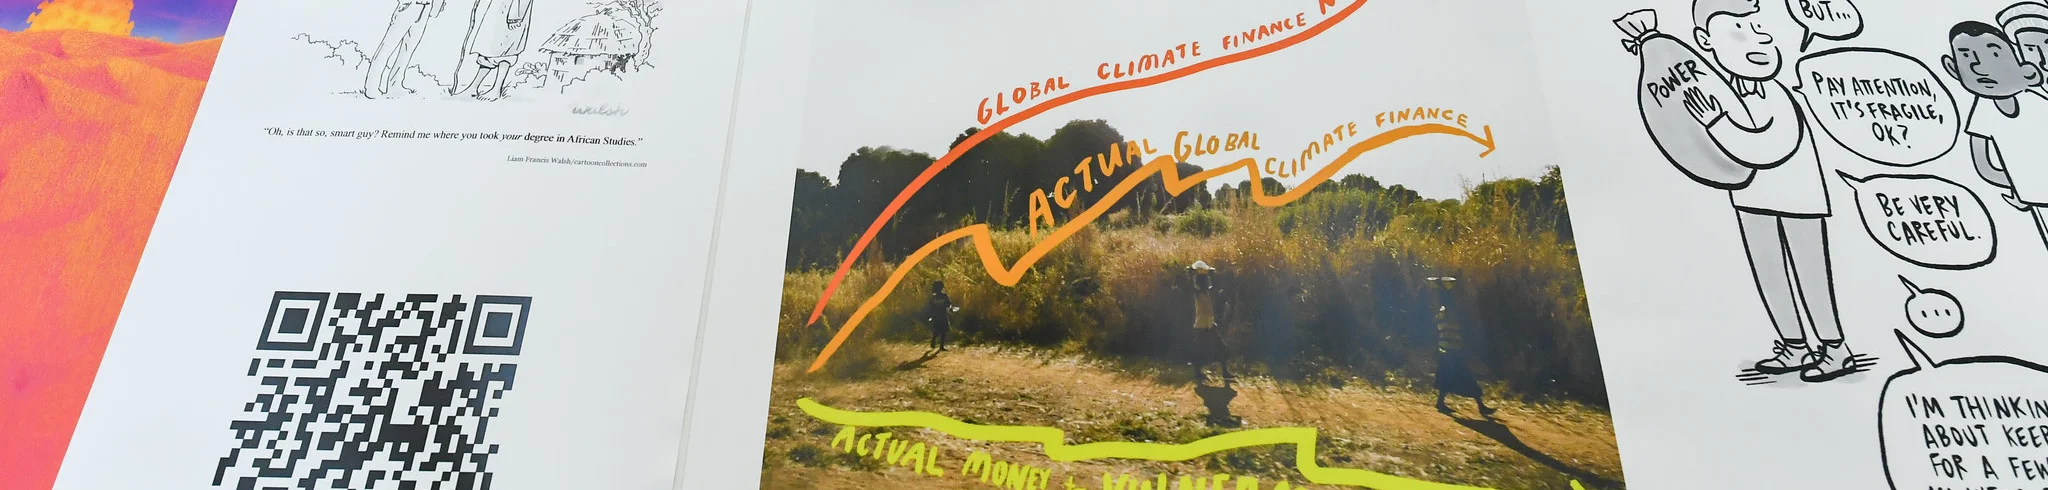 walsh
"Oh, is that so, smart guy? Remind me where you took your degree in African Studies."
Liam Francis Walsh/cartooncollections.com
GLOBAL CLIMATE FINANCE
ACTUAL GLOBAL CLIMATE FINANCE
ACTUAL MONEY
BUT...
POWER
PAY ATTENTION,
IT'S FRAGILE,
OK?
BE VERY
CAREFUL.
...
I'M THINKIN
ABOUT KEEP
FOR A FEW